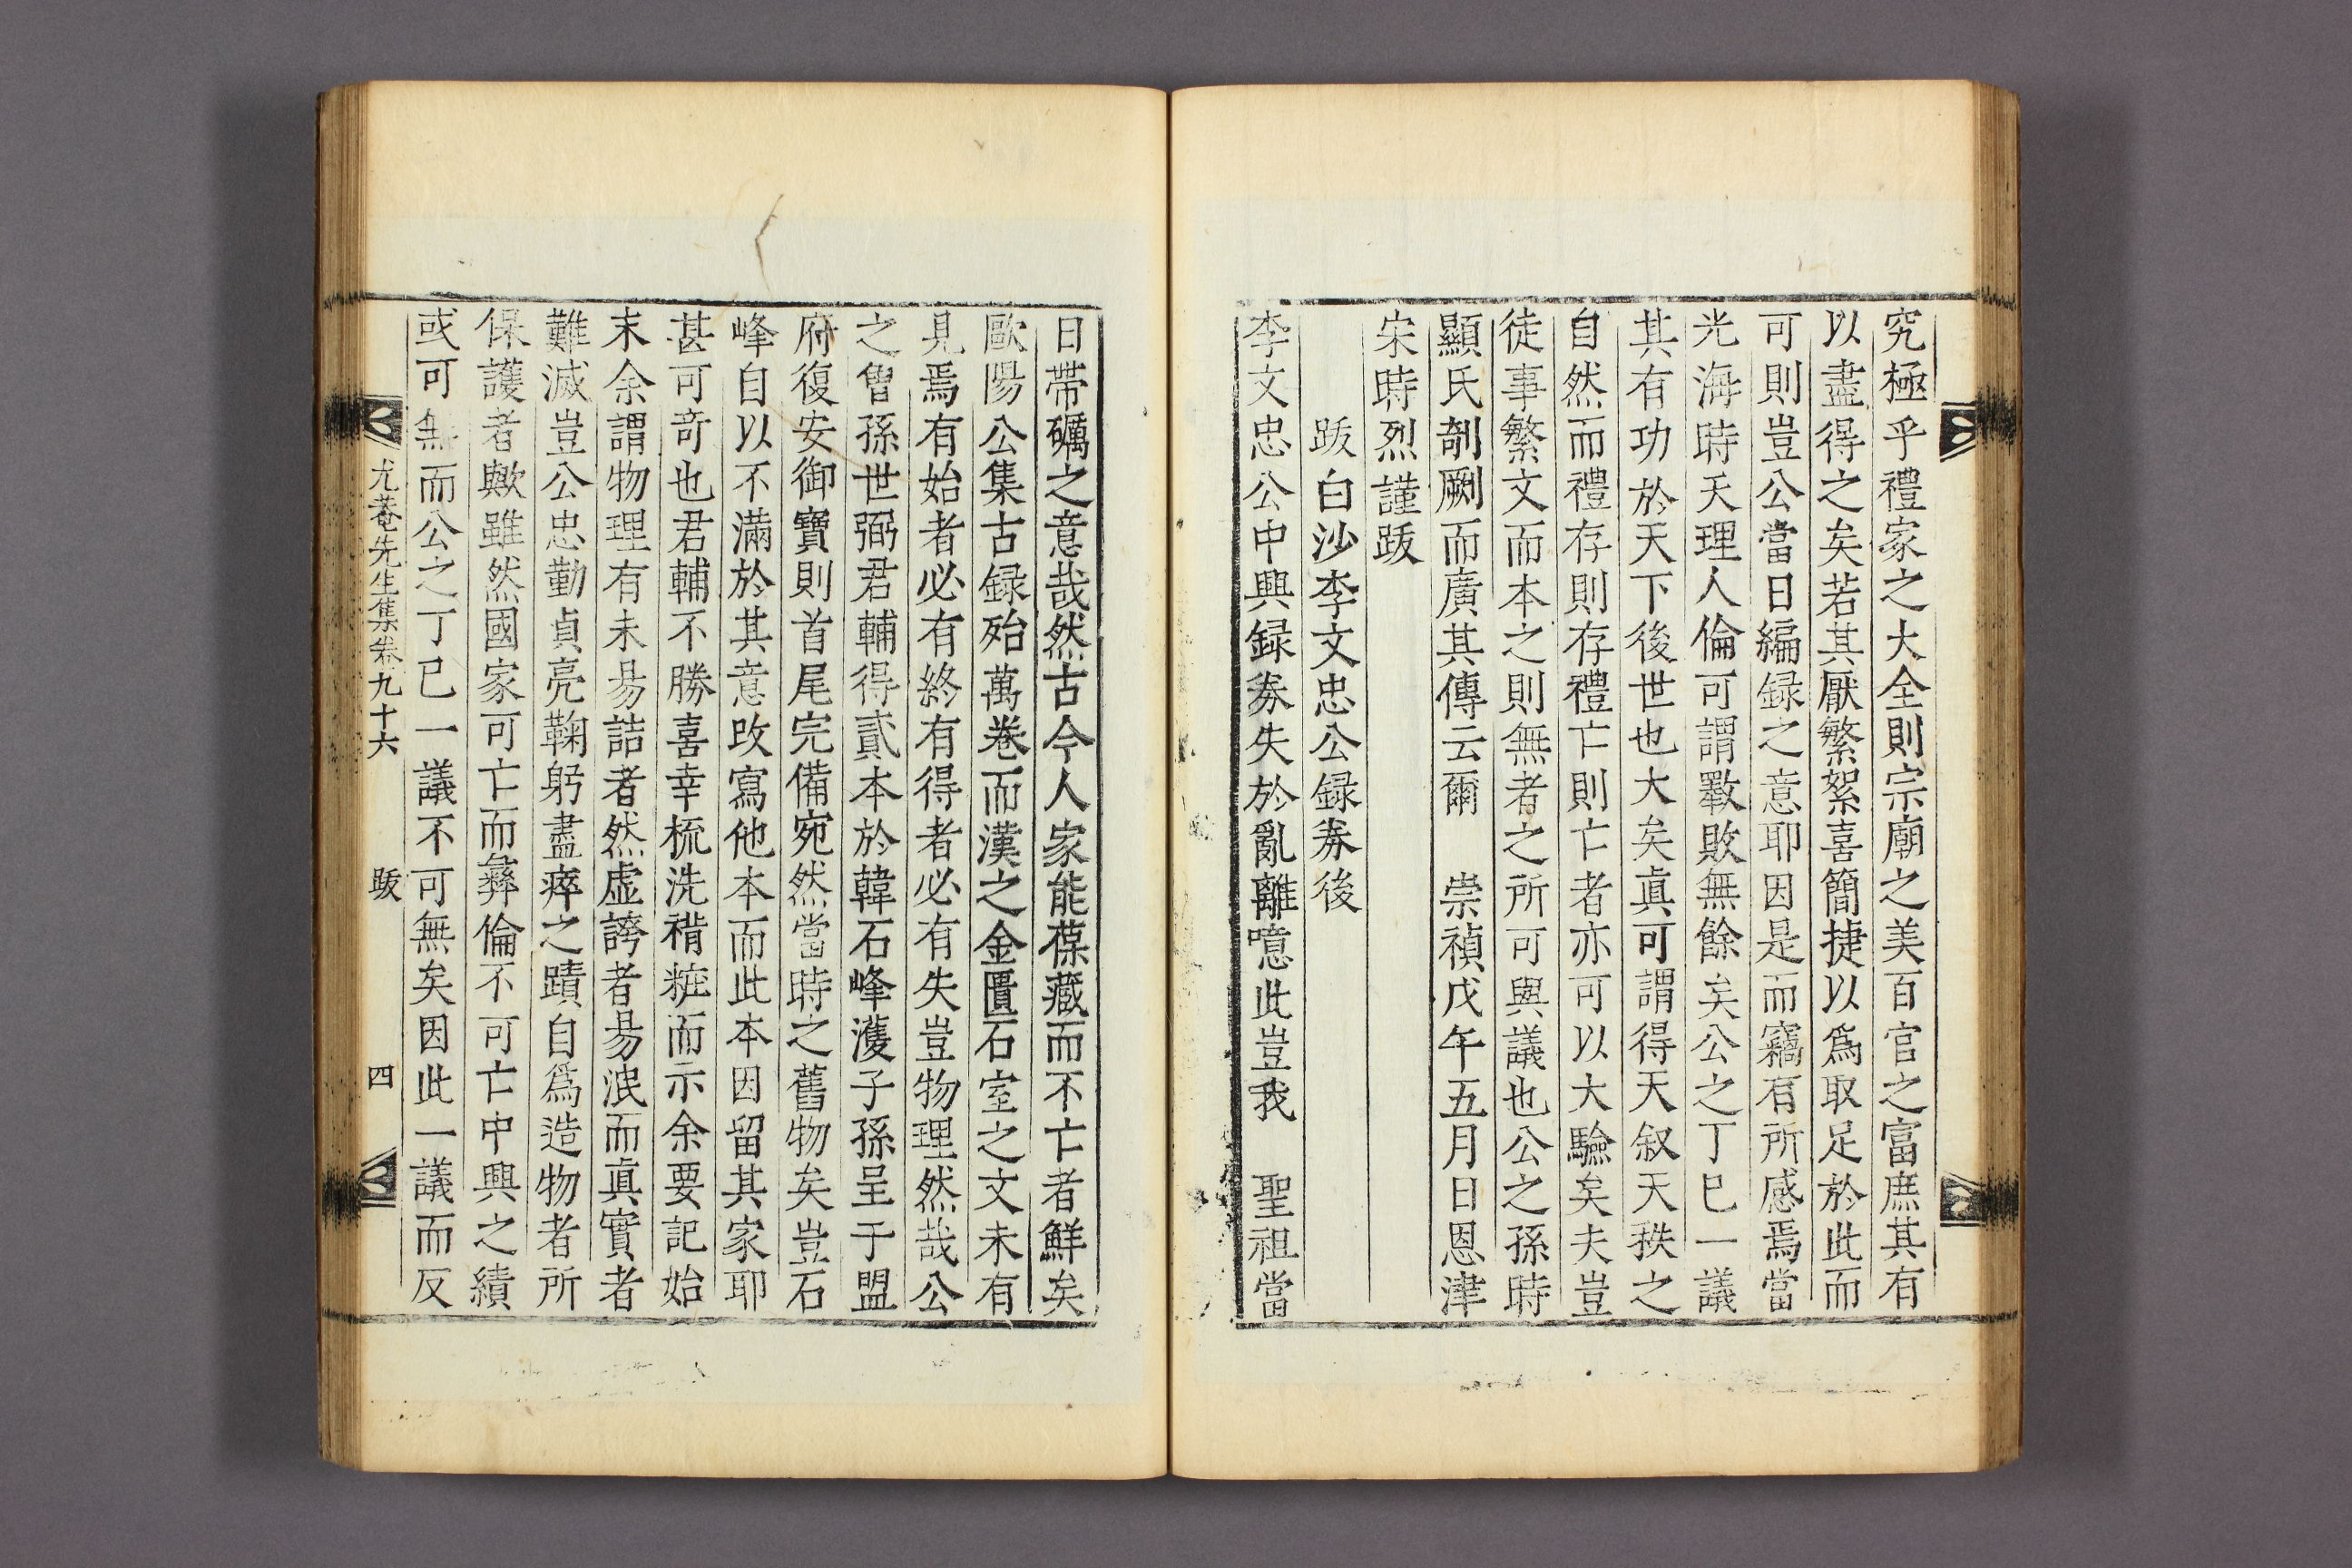 究極乎禮家之大全則宗廟之美百官之富庶其有
以盡得之矣若其厭繁絮喜簡捷以爲取足於此而
可則豈公當日編録之意耶因是而竊有所感焉當
光海時天理人倫可謂斁敗無餘矣公之丁巳一議
其有功於天下後世也大矣眞可謂得天叙天秩之
自然而禮存則存禮亡則亡者亦可以大驗矣夫豈
徒事繁文而本之則無者之所可與議也公之孫時
顯氏剞劂而廣其傳云爾 崇禎戊午五月日恩津
宋時烈謹跋
跋白沙李文忠公録券後
李文忠公中興録券失於亂離噫此豈我 聖祖當
日帶礪之意哉然古今人家能葆藏而不亡者鮮矣
歐陽公集古録殆萬卷而漢之金匱石室之文未有
見焉有始者必有終有得者必有失豈物理然哉公
之曾孫世弼君輔得貳本於韓石峰濩子孫呈于盟
府復安御寶則首尾完備宛然當時之舊物矣豈石
峰自以不滿於其意改寫他本而此本因留其家耶
甚可奇也君輔不勝喜幸梳洗褙粧而示余要記始
末余謂物理有未易詰者然虛誇者易泯而眞實者
難滅豈公忠勤貞亮鞠躬盡瘁之蹟自爲造物者所
保護者歟雖然國家可亡而彝倫不可亡中興之績
或可無而公之丁巳一議不可無矣因此一議而反
尤菴先生集卷九十六 跋 四